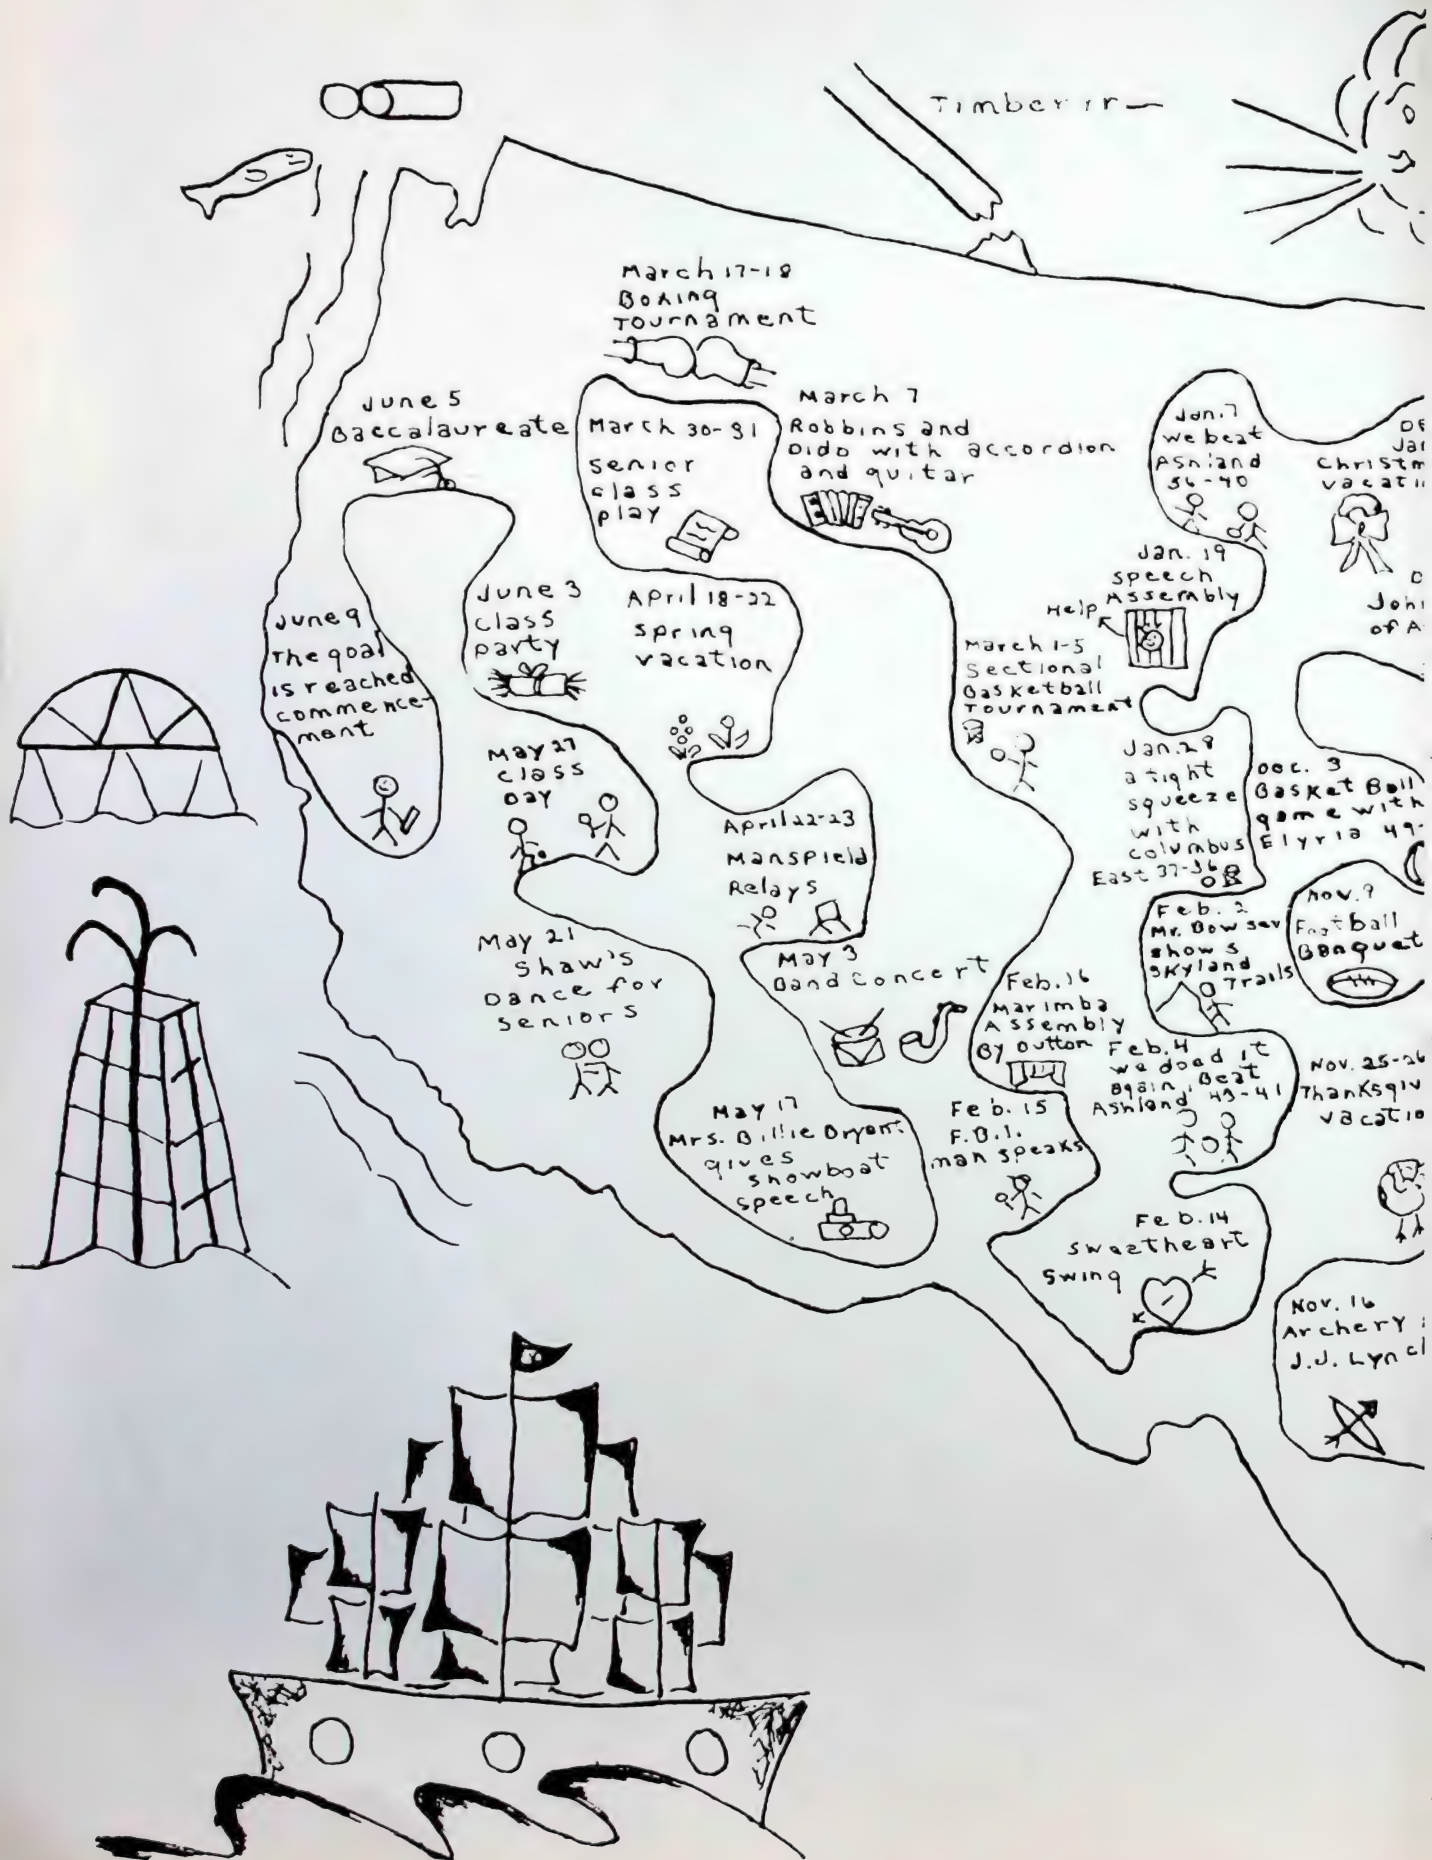 Timber
March 17-18
Boxing
Tournament
June 5
Baccalaureate
March 30-31
senior
class
play
March 7
Robbins and
Dido with accordion
and guitar
Jan. 7
we beat
Ashland
56-40
Christm
vacati
Jan. 19
speech
Assembly
Help
June 9
The goal
is reached
commence-
ment
June 3
class
party
April 18-22
spring
vacation
March 1-5
Sectional
Basketball
Tournament
John
of A
May 27
class
Day
Jan. 28
a tight
squeeze
with
columbus
East 37-36
Dec. 3
Basket Ball
game with
Elyria 49-
April 22-23
Mansfield
Relays
Feb. 2
Mr. Bowser
shows
Skyland
Trails
Nov. 9
Football
Banquet
May 21
Shaw's
Dance for
Seniors
May 3
Band Concert
Feb. 16
Marimba
Assembly
By Dutton
Feb. 4
we doed it
again, Beat
Ashland 43-41
Nov. 25-26
Thanksgiv
vacatio
May 17
Mrs. Billie Bryant
gives
showboat
speech
Feb. 15
F.B.I.
man speaks
Feb. 14
Sweetheart
Swing
Nov. 16
Archery
J.J. Lyncl